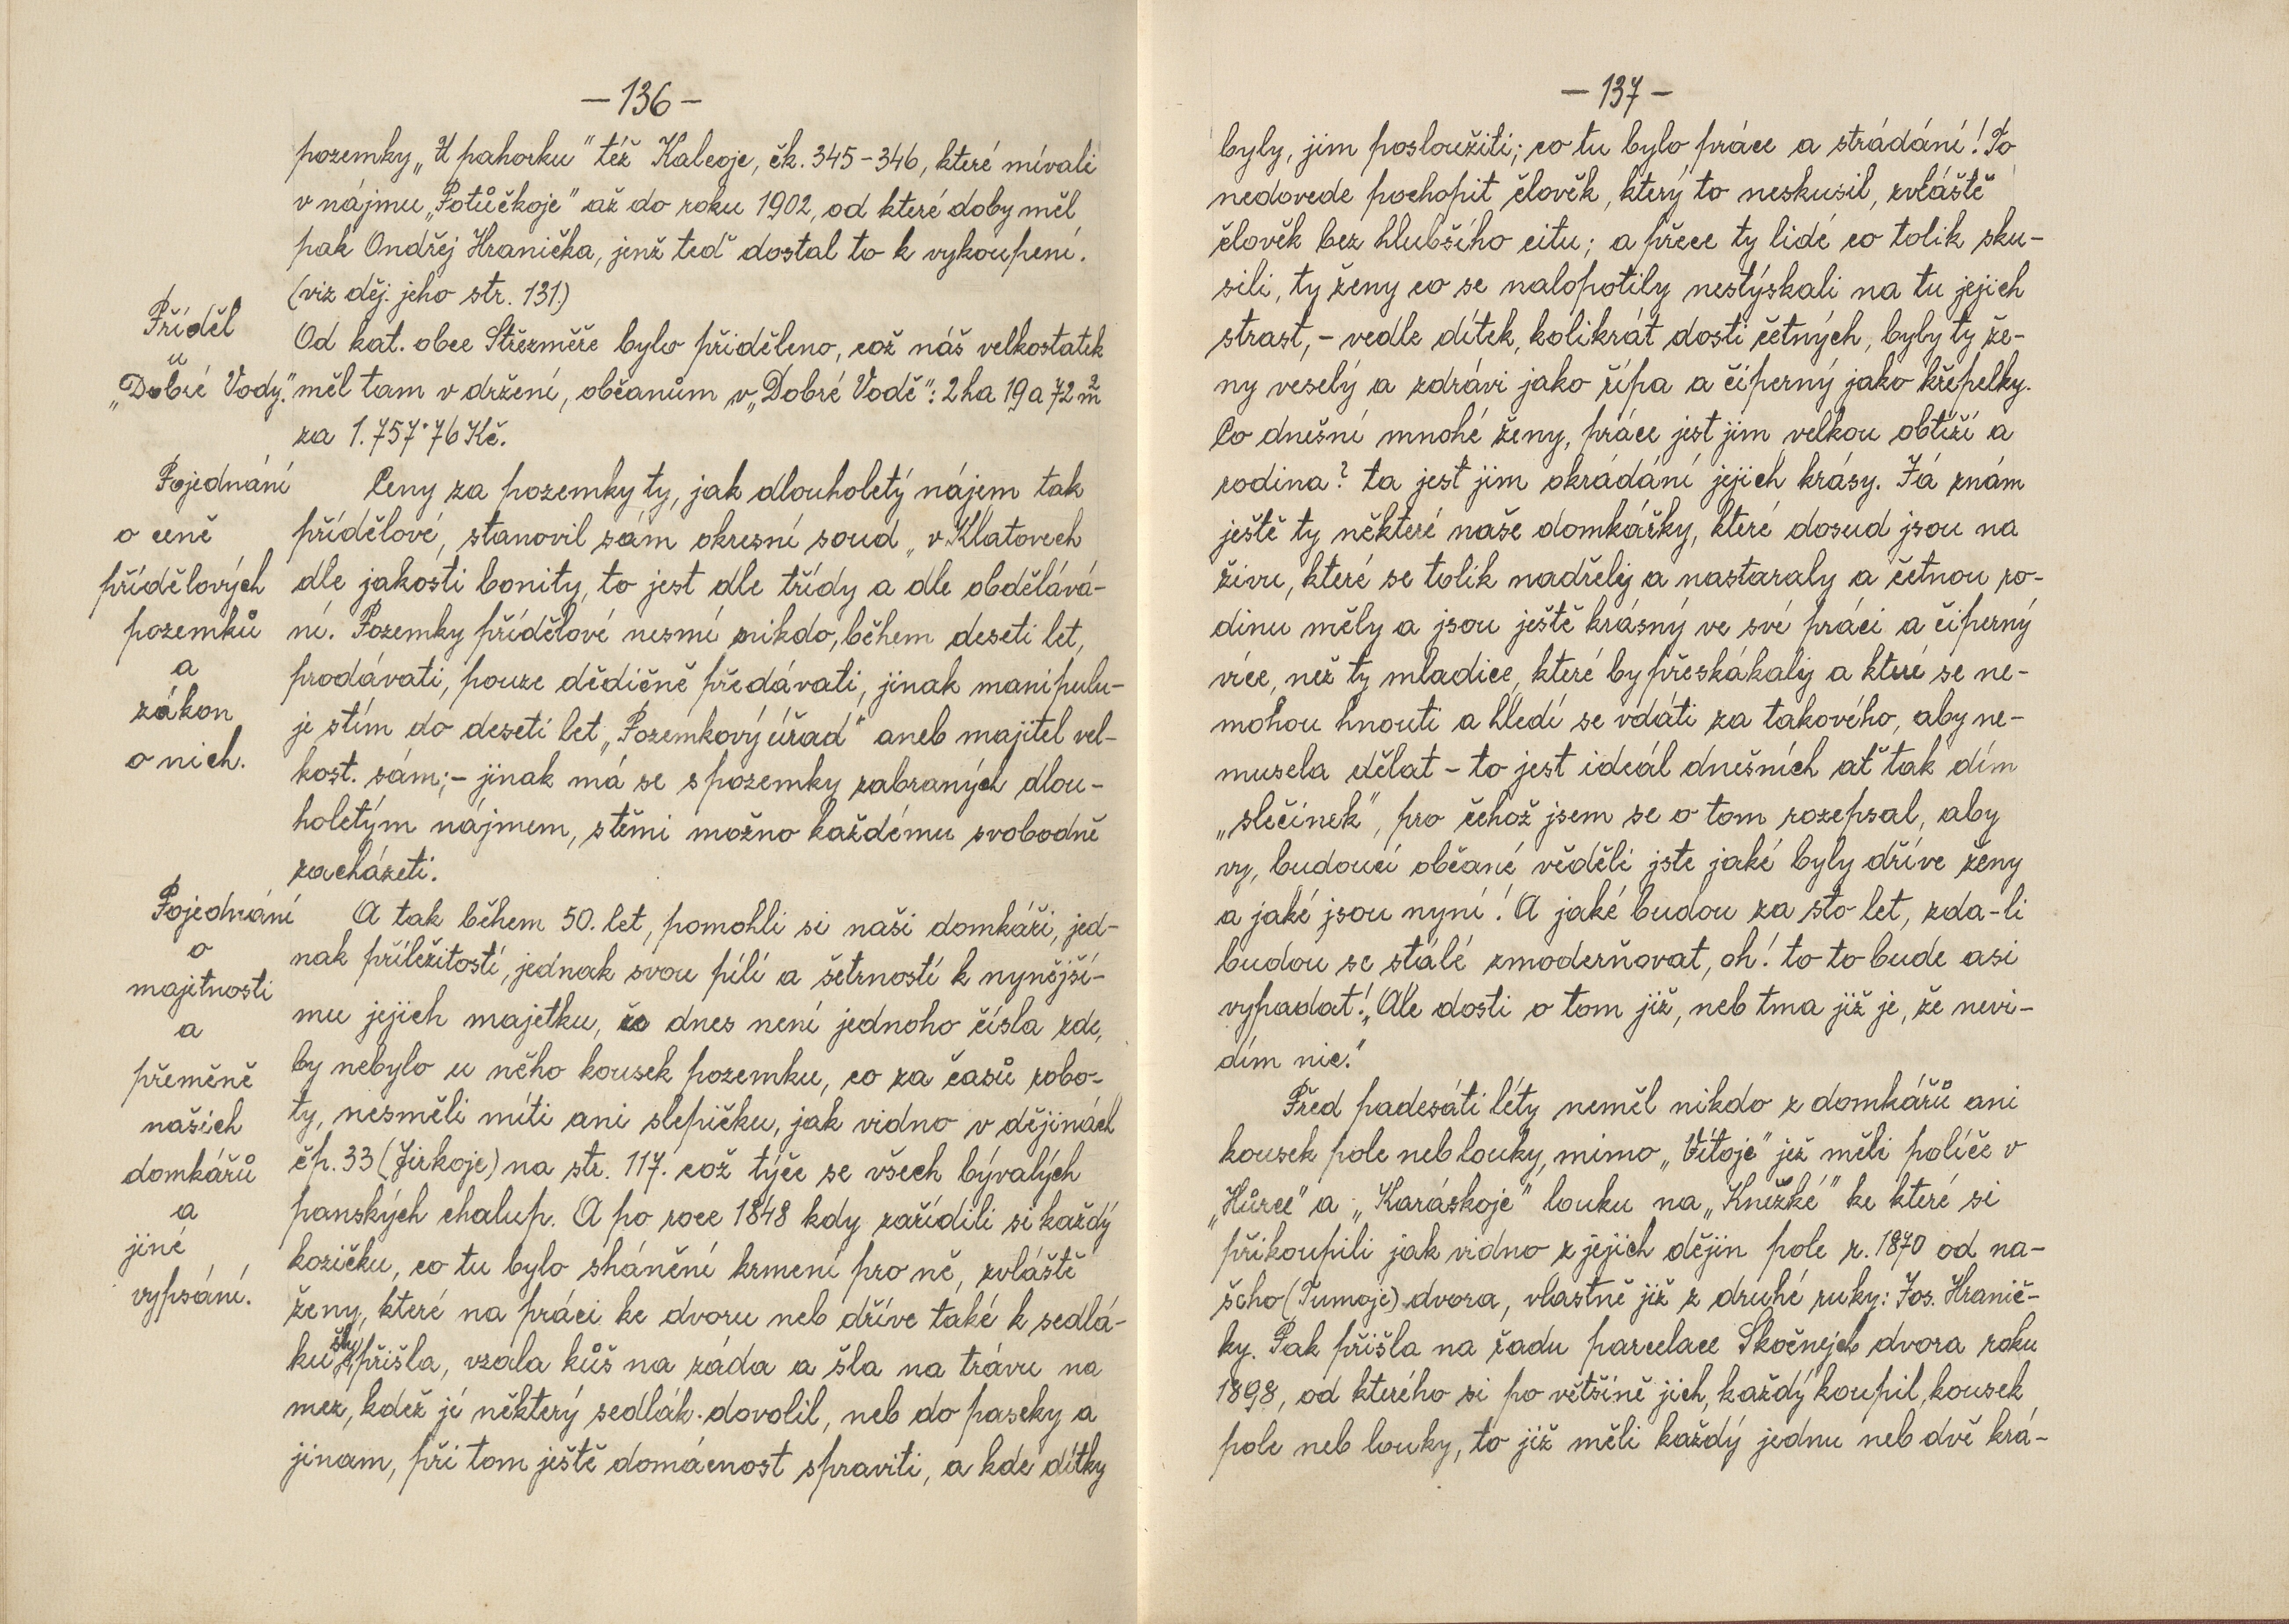 — 136 —
pozemky „U pahorku" též Kalcoje, čk. 345 – 346, které mívali
v nájmu „Potůčkoje" až do roku 1902, od které doby měl
pak Ondřej Hranička, jenž teď dostal to k vykoupení.
(viz děj. jeho str. 131.)
Příděl
u
„Dobré Vody."
Od kat. obce Střezměře bylo přiděleno, což náš velkostatek
měl tam v držení, občanům v „Dobré Vodě": 2 ha 19 a 72 m²
za 1.757·76 Kč.
Pojednání
o ceně
přídělových
pozemků
a
zákon
o nich.
Ceny za pozemky ty, jak dlouholetý nájem tak
přídělové, stanovil sám okresní soud „v Klatovech
dle jakosti bonity, to jest dle třídy a dle obdělává-
ní. Pozemky přídělové nesmí nikdo, během deseti let,
prodávati, pouze dědičně předávati, jinak manipulu-
je stím do deseti let „Pozemkový úřad" aneb majitel vel-
kost. sám; – jinak má se s pozemky zabraných dlou-
holetým nájmem, stěmi možno každému svobodně
zacházeti.
Pojednání
o
majetnosti
a
přeměně
našich
domkářů
a
jiné
vypsání.
A tak během 50. let, pomohli si naši domkáři, jed-
nak příležitostí, jednak svou pílí a šetrností k nynější-
mu jejich majetku, že dnes není jednoho čísla zde,
by nebylo u něho kousek pozemku, co za časů robo-
ty, nesměli míti ani slepičku, jak vidno v dějinách
čp. 33 (Jirkoje) na str. 117. což týče se všech bývalých
panských chalup. A po roce 1848 kdy zařídili si každý
kozičku, co tu bylo shánění krmení pro ně, zvláště
ženy, které na práci ke dvoru neb dříve také k sedlá-
ku šly, přišla, vzala kůš na záda a šla na trávu na
mez, kdež jé některý sedlák dovolil, neb do paseky a
jinam, při tom ještě domácnost spraviti, a kde dítky
— 137 —
byly, jim posloužiti; co tu bylo práce a strádání! To
nedovede pochopit člověk, který to neskusil, zvláště
člověk bez hlubšího citu; a přece ty lidé co tolik sku-
sili, ty ženy co se nalopotily nestýskali na tu jejich
strast, – vedle dítek, kolikrát dosti četných, byly ty že-
ny veselý a zdrávi jako řípa a čiperný jako křepelky.
Co dnešní mnohé ženy, práce jest jim velkou obtíží a
rodina? ta jest jim okrádání jejich krásy. Já znám
ještě ty některé naše domkářky, které dosud jsou na
živu, které se tolik nadřely a nastaraly a četnou ro-
dinu měly a jsou ještě krásný ve své práci a čiperný
více, než ty mladice, které by přeskákaly a které se ne-
mohou hnouti a hledí se vdáti za takového, aby ne-
musela dělat – to jest ideál dnešních ať tak dím
„slečinek", pro čehož jsem se o tom rozepsal, aby
vy, budoucí občané věděli jste jaké byly dříve ženy
a jaké jsou nyní! A jaké budou za sto let, zda-li
budou se stálé zmoderňovat, oh! to to bude asi
vypadat! „Ale dosti o tom již, neb tma již je, že nevi-
dím nic."
Před padesáti léty neměl nikdo z domkářů ani
kousek pole neb louky, mimo „Vítoje" jež měli políče v
„Hůrce" a „Karáskoje" louku na „Knížké" ke které si
přikoupili jak vidno z jejich dějin pole r. 1870 od na-
šeho (Tumoje) dvora, vlastně již z druhé ruky: Jos. Hranič-
ky. Pak přišla na řadu parcelace Skočnejch dvora roku
1898, od kterého si po většině jich, každý koupil, kousek
pole neb louky, to již měli každý jednu neb dvě krá-